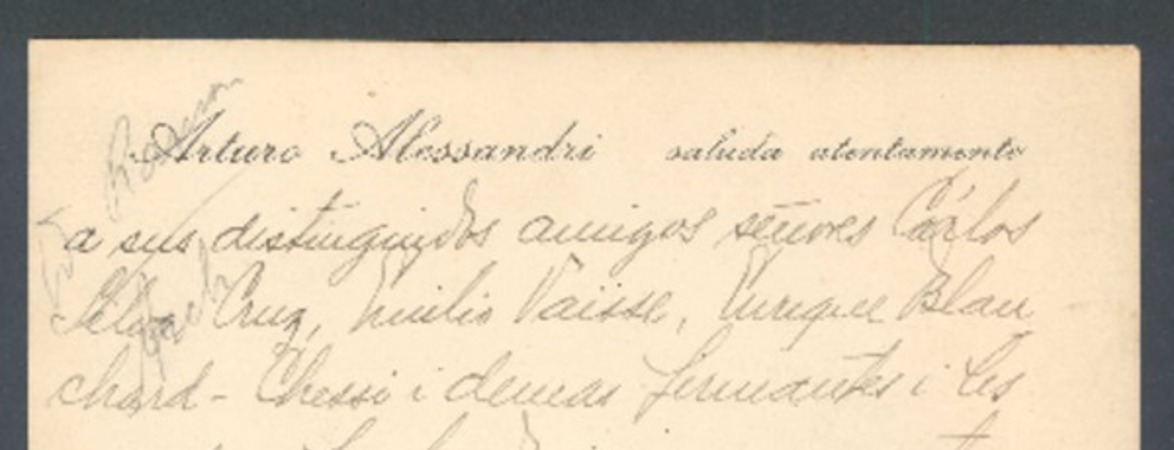 Arturo Alessandri saluda atentamente
a sus distinguidos amigos señores Cárlos
Silva Cruz, Emilio Vaïsse, Enrique Blan
chard-Chessi i demas firmantes i les